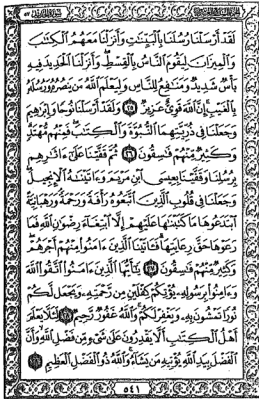 لَقَدْ أَرْسَلْنَا رُسُلَنَا بِٱلْبَيِّنَٰتِ وَأَنزَلْنَا مَعَهُمُ ٱلْكِتَٰبَ
وَٱلْمِيزَانَ لِيَقُومَ ٱلنَّاسُ بِٱلْقِسْطِ وَأَنزَلْنَا ٱلْحَدِيدَ فِيهِ
بَأْسٌ شَدِيدٌ وَمَنَٰفِعُ لِلنَّاسِ وَلِيَعْلَمَ ٱللَّهُ مَن يَنصُرُهُۥ وَرُسُلَهُۥ
بِٱلْغَيْبِ إِنَّ ٱللَّهَ قَوِىٌّ عَزِيزٌ ٢٥ وَلَقَدْ أَرْسَلْنَا نُوحًا وَإِبْرَٰهِيمَ
وَجَعَلْنَا فِى ذُرِّيَّتِهِمَا ٱلنُّبُوَّةَ وَٱلْكِتَٰبَ فَمِنْهُم مُّهْتَدٍ
وَكَثِيرٌ مِّنْهُمْ فَٰسِقُونَ ٢٦ ثُمَّ قَفَّيْنَا عَلَىٰٓ ءَاثَٰرِهِم
بِرُسُلِنَا وَقَفَّيْنَا بِعِيسَى ٱبْنِ مَرْيَمَ وَءَاتَيْنَٰهُ ٱلْإِنجِيلَ
وَجَعَلْنَا فِى قُلُوبِ ٱلَّذِينَ ٱتَّبَعُوهُ رَأْفَةً وَرَحْمَةً وَرَهْبَانِيَّةً
ٱبْتَدَعُوهَا مَا كَتَبْنَٰهَا عَلَيْهِمْ إِلَّا ٱبْتِغَآءَ رِضْوَٰنِ ٱللَّهِ فَمَا
رَعَوْهَا حَقَّ رِعَايَتِهَا فَـَٔاتَيْنَا ٱلَّذِينَ ءَامَنُوا۟ مِنْهُمْ أَجْرَهُمْ
وَكَثِيرٌ مِّنْهُمْ فَٰسِقُونَ ٢٧ يَٰٓأَيُّهَا ٱلَّذِينَ ءَامَنُوا۟ ٱتَّقُوا۟ ٱللَّهَ
وَءَامِنُوا۟ بِرَسُولِهِۦ يُؤْتِكُمْ كِفْلَيْنِ مِن رَّحْمَتِهِۦ وَيَجْعَل لَّكُمْ
نُورًا تَمْشُونَ بِهِۦ وَيَغْفِرْ لَكُمْ وَٱللَّهُ غَفُورٌ رَّحِيمٌ ٢٨ لِّئَلَّا يَعْلَمَ
أَهْلُ ٱلْكِتَٰبِ أَلَّا يَقْدِرُونَ عَلَىٰ شَىْءٍ مِّن فَضْلِ ٱللَّهِ وَأَنَّ
ٱلْفَضْلَ بِيَدِ ٱللَّهِ يُؤْتِيهِ مَن يَشَآءُ وَٱللَّهُ ذُو ٱلْفَضْلِ ٱلْعَظِيمِ ٢٩
٥٤١